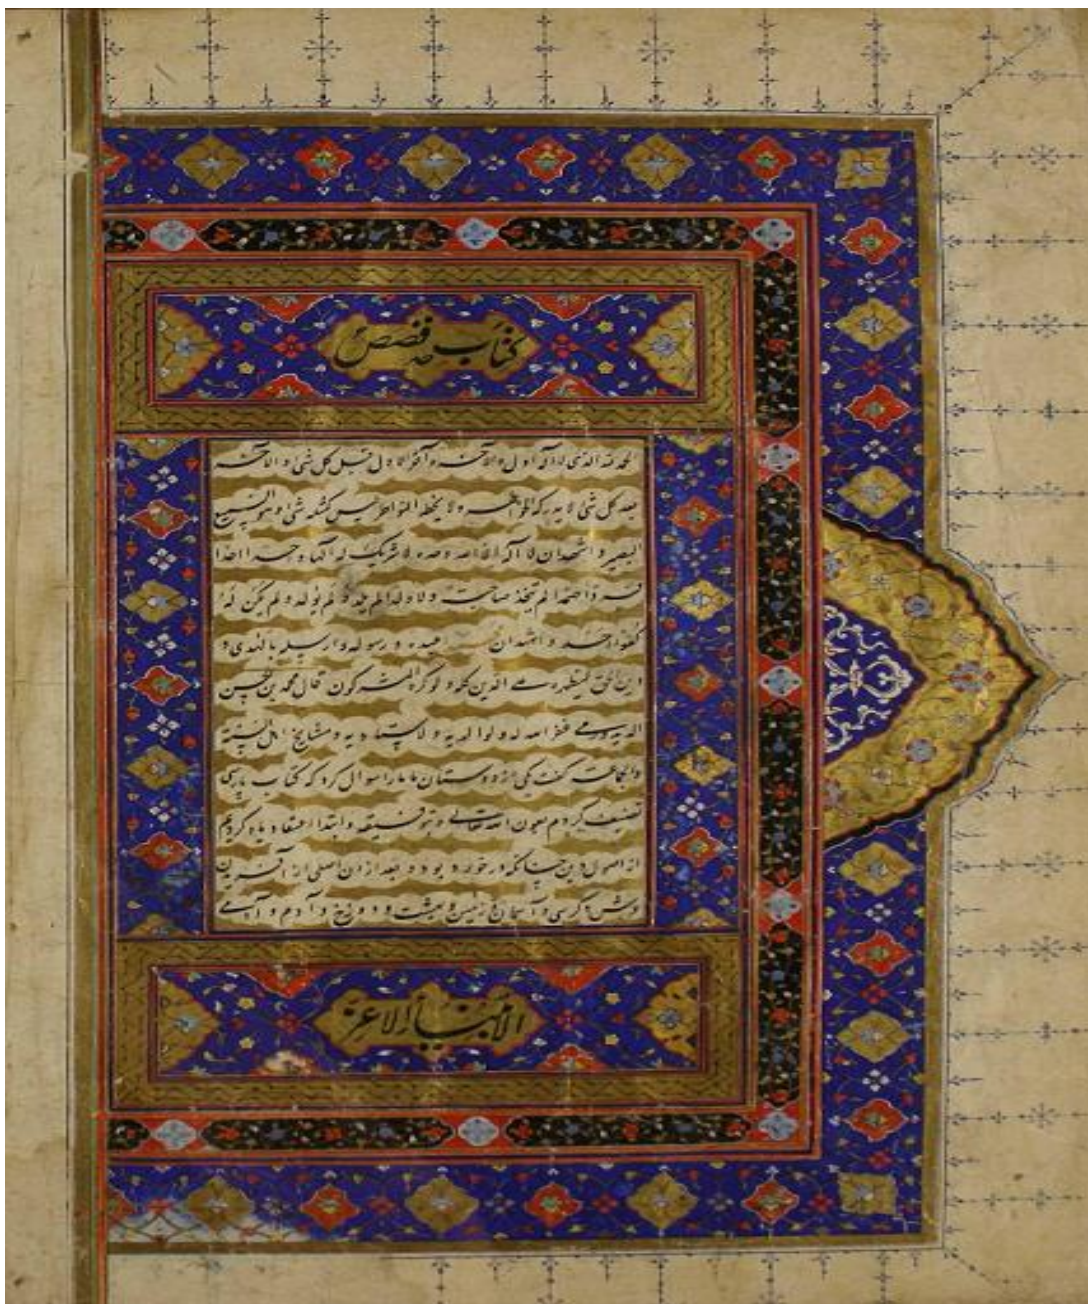 كتاب قصص
الحمد لله الذی لا اله اول و الآخره و آخر الاول قبل كل شئ و الآخر
بعد كل شئ لا يدركه الظواهر و لا يخطه النواظر ليس كمثله شئ و هو السميع
البصير و اشهد ان لا اله الا الله وحده لا شريك له آلها واحدا احدا
فردا صمدا لم يتخذ صاحبة و لا ولدا لم يلد و لم يولد و لم يكن له
كفوا احد و اشهد ان عبده و رسوله و ارسله بالهدى و
دين الحق ليظهره على الدين كله و لو كره المشركون قال محمد بن حسين
الديدرمى غفر الله له و لوالديه و لاستاديه و مشايخ اهل السنة
والجماعة گفت يكى از دوستان ما مارا سوال كرد كه كتاب پارسى
تصنيف كرديم بعون الله تعالى و توفيقه و ابتدا اعتقاد ياد كرديم
از اصول دين چنانكه درخورد بود و بعد از آن اصلى از آفرين
عرش و كرسى و آسمان و زمين و بهشت و دوزخ و آدم و آدمى
الانبيا الاعز